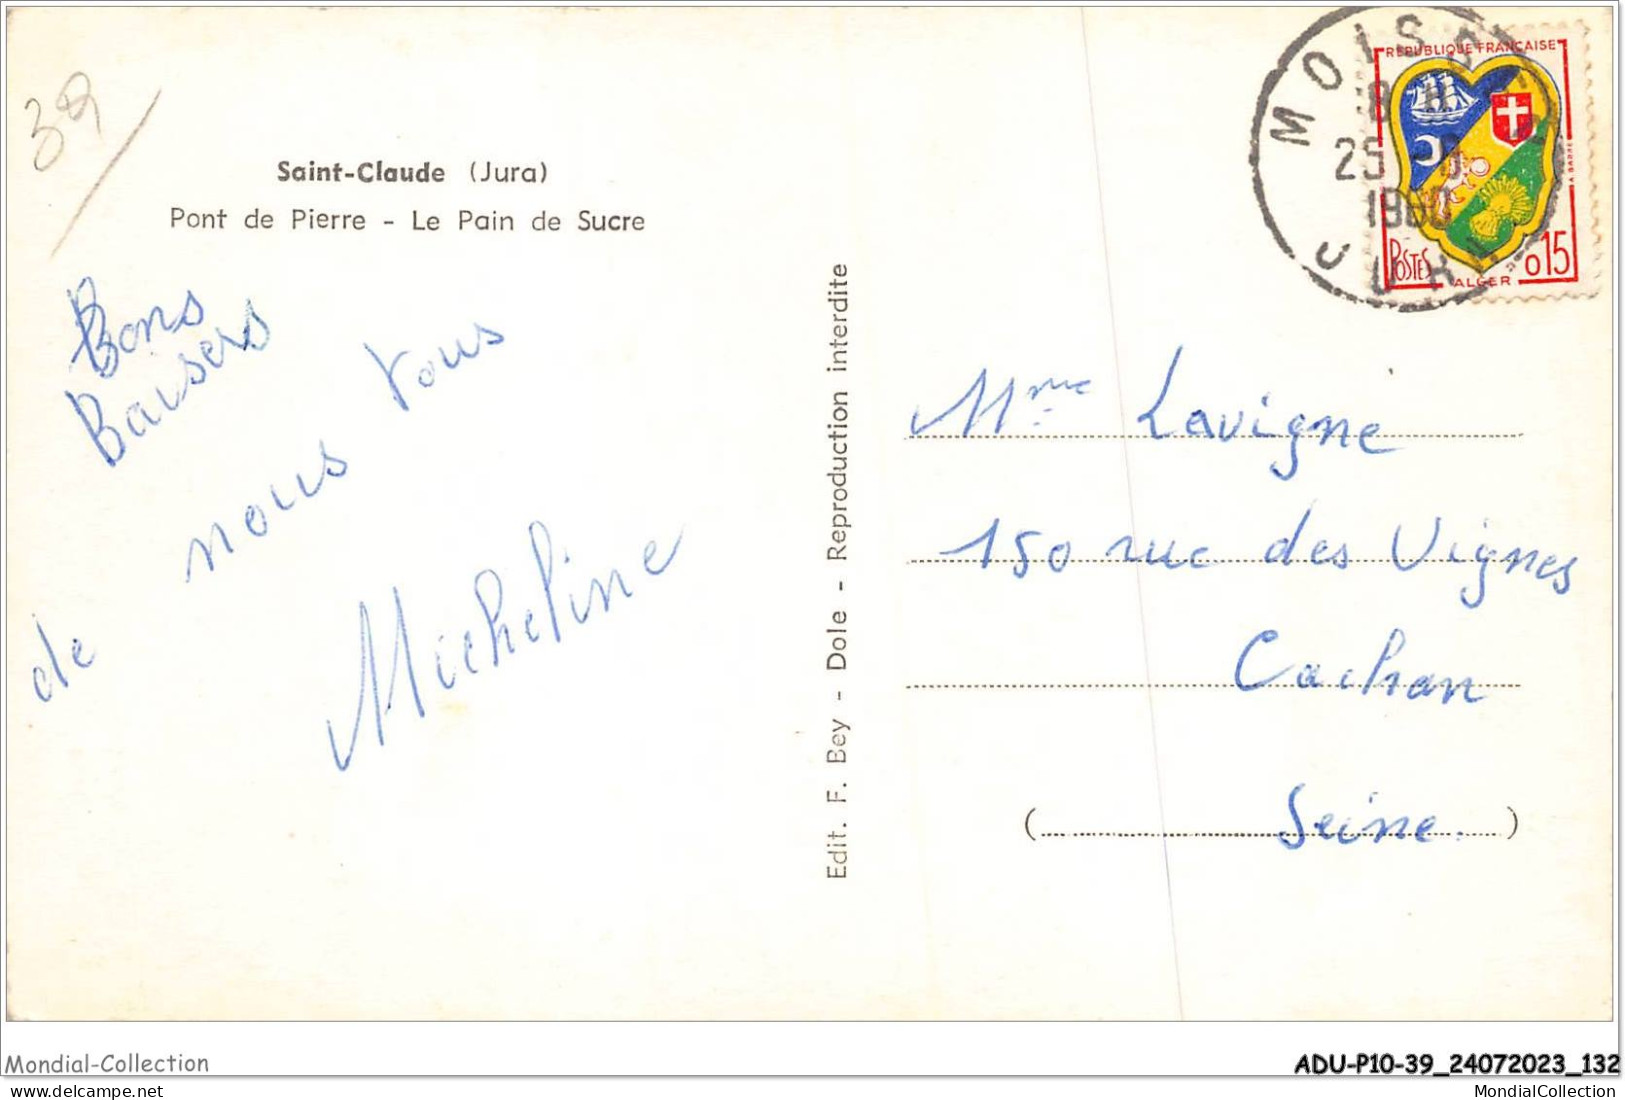 39
Saint-Claude (Jura)
Pont de Pierre - Le Pain de Sucre
Bons
Baisers
de nous tous
Micheline
Edit. F. Bey - Dole - Reproduction interdite
RÉPUBLIQUE FRANÇAISE
POSTES
ALGER
0,15
JURA
Mme Lavigne
150 rue des Vignes
Cachan
(Seine.)
Mondial-Collection
ADU-P10-39_24072023_132
MondialCollection